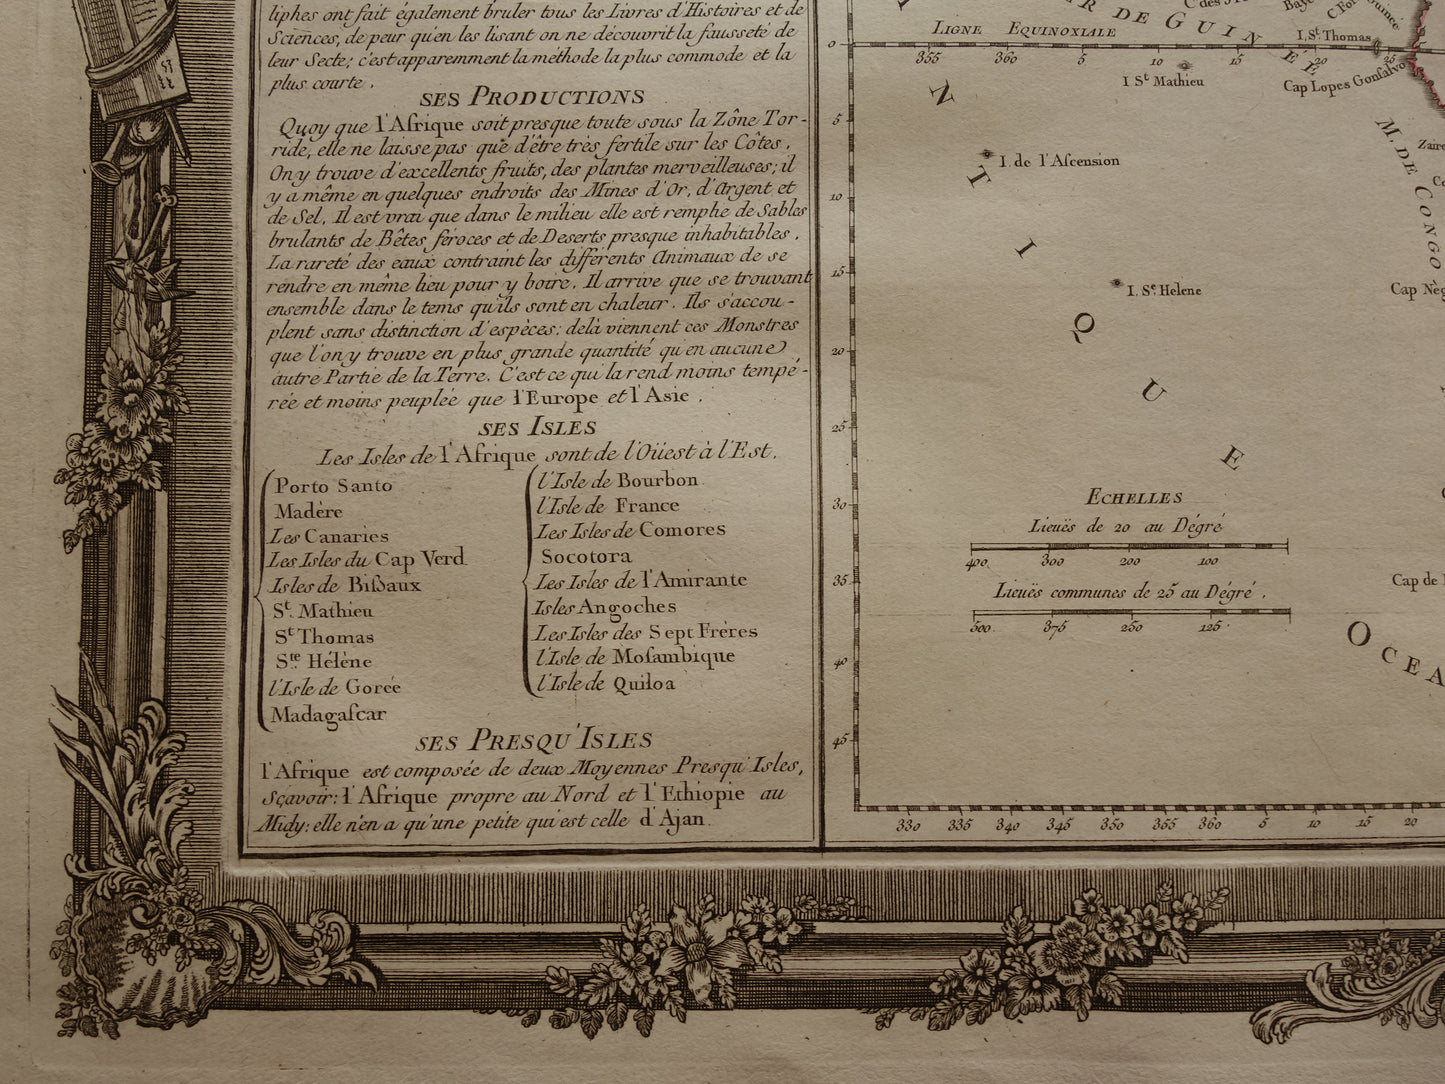 liphes ont fait également bruler tous les Livres d'Histoires et de
Sciences, de peur qu'en les lisant on ne découvrit la fausseté de
leur Secte; c'est apparemment la méthode la plus commode et la
plus courte.
SES PRODUCTIONS
Quoy que l'Afrique soit presque toute sous la Zône Tor-
ride, elle ne laisse pas que d'être très fertile sur les Côtes.
On y trouve d'excellents fruits, des plantes merveilleuses; il
y a même en quelques endroits des Mines d'Or, d'Argent et
de Sel. Il est vrai que dans le milieu elle est remplie de Sables
brulants de Bêtes féroces et de Deserts presque inhabitables.
La rareté des eaux contraint les différents Animaux de se
rendre en même lieu pour y boire. Il arrive que se trouvant
ensemble dans le tems qu'ils sont en chaleur. Ils s'accou-
plent sans distinction d'espèces; delà viennent ces Monstres
que l'on y trouve en plus grande quantité qu'en aucune
autre Partie de la Terre. C'est ce qui la rend moins tempé-
rée et moins peuplée que l'Europe et l'Asie.
SES ISLES
Les Isles de l'Afrique sont de l'Oüest à l'Est.
Porto Santo
Madère
Les Canaries
Les Isles du Cap Verd
Isles de Bißaux
St. Mathieu
St Thomas
Ste. Hélène
l'Isle de Gorée
Madagaſcar
l'Isle de Bourbon
l'Isle de France
Les Isles de Comores
Socotora
Les Isles de l'Amirante
Isles Angoches
Les Isles des Sept Frères
l'Isle de Moſambique
l'Isle de Quiloa
SES PRESQU'ISLES
l'Afrique est composée de deux Moyennes Presqu'Isles,
Sçavoir: l'Afrique propre au Nord et l'Ethiopie au
Midy: elle n'en a qu'une petite qui est celle d'Ajan.
DE GUINÉE
I. St. Thomas
LIGNE EQUINOXIALE
0
355 360 5 10 15 20
I St Mathieu
Cap Lopes Gonſalvo
M. DE CONGO
5
I. de l'Ascension
10
15
I. Ste Helene
20
25
30
35
40
45
NTIQUE
ECHELLES
Lieuës de 20 au Dégré
400 300 200 100
Lieuës communes de 25 au Dégré.
500 375 250 125
Cap de
OCEA
330 335 340 345 350 355 360 5 10 15 20